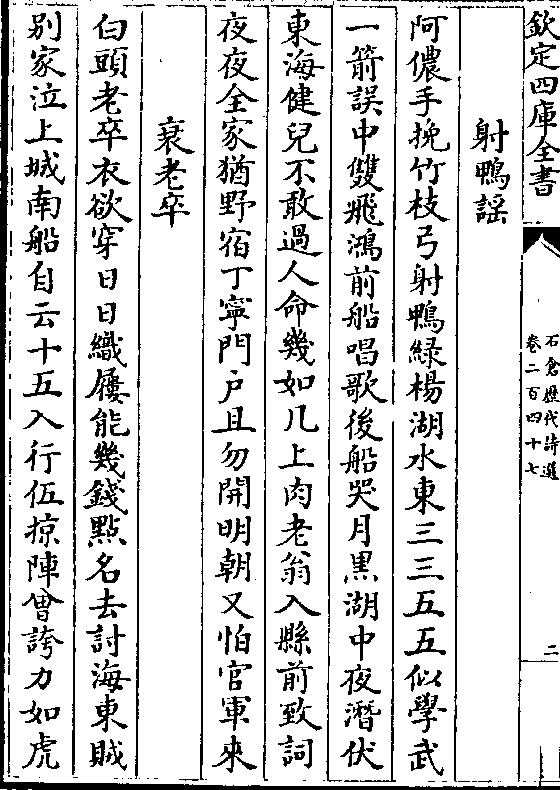 欽定四庫全書
石倉歴代詩選
卷二百四十七
二
射鴨謡
阿儂手挽竹枝弓射鴨緑楊湖水東三三五五似學武
一箭誤中雙飛鴻前船唱歌後船哭月黒湖中夜潛伏
東海健兒不敢過人命幾如几上肉老翁入縣前致詞
夜夜全家猶野宿丁寧門户且勿開明朝又怕官軍來
衰老卒
白頭老卒衣欲穿日日織屨能幾錢點名去討海東賊
别家泣上城南船自云十五入行伍掠陣曾誇力如虎